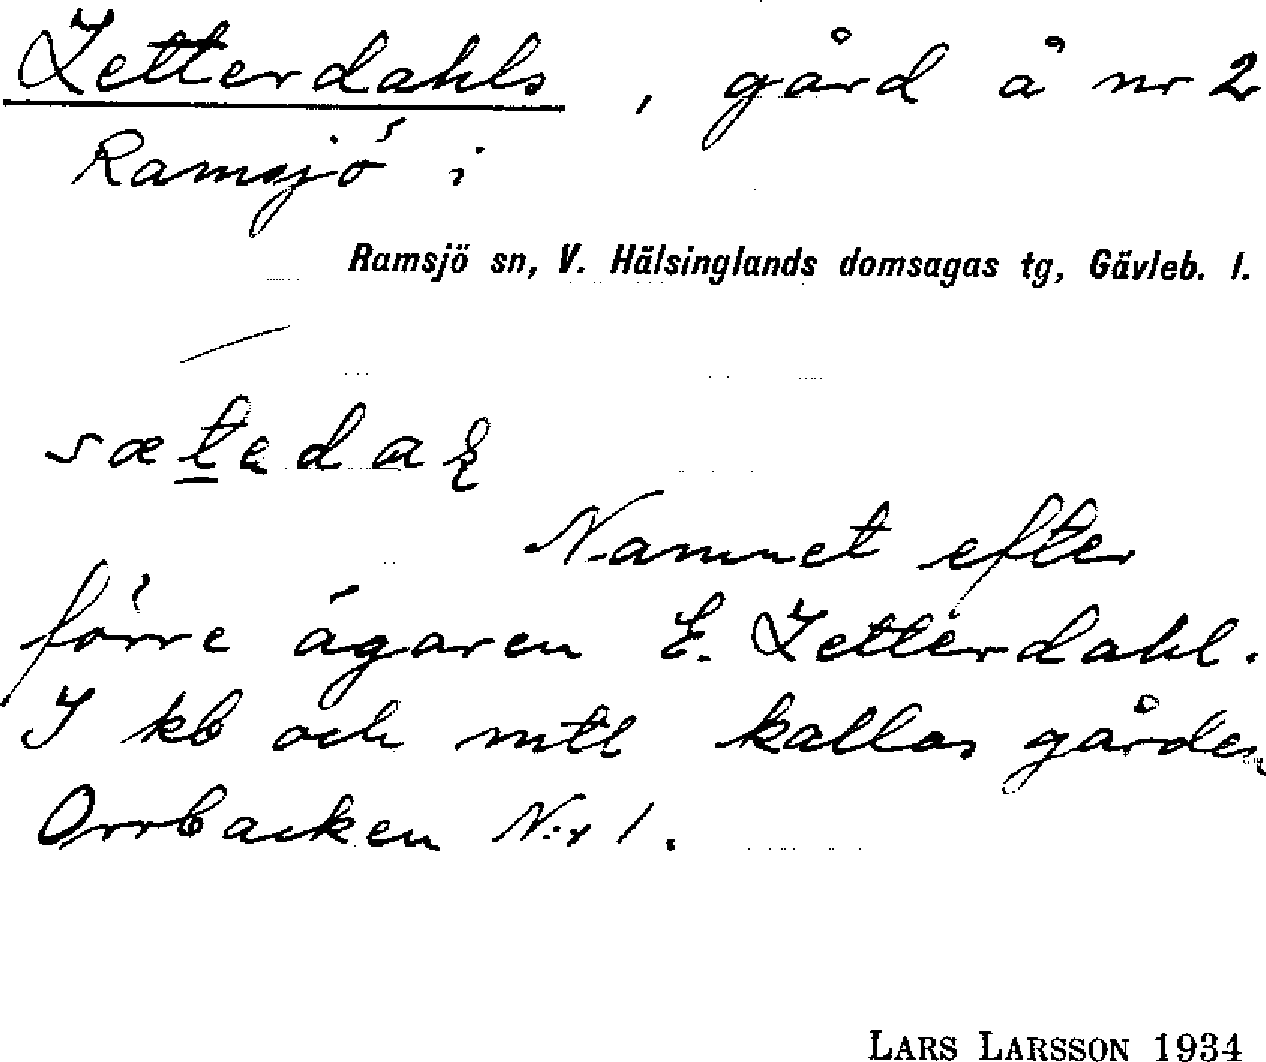 Zetterdahls, gård å nr 2
Ramsjö i
Ramsjö sn, V. Hälsinglands domsagas tg, Gävleb. l.
Namnet efter
förre ägaren E. Zetterdahl.
I kb och mtl kallas gården
Orrbacken N:r 1.
LARS LARSSON 1934